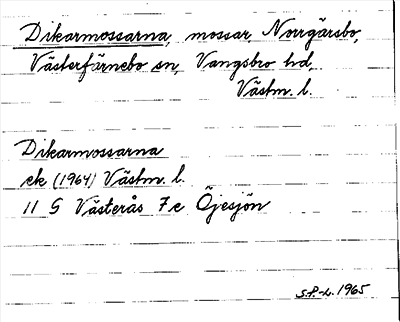 Dikarmossarna, mossar, Norrgärsbo,
Västerfärnebo sn, Vangsbro hd,
Västm. l.
Dikarmossarna
ek (1964) Västm. l.
11 G Västerås 7 c Öjesjön
S.P.-L. 1965